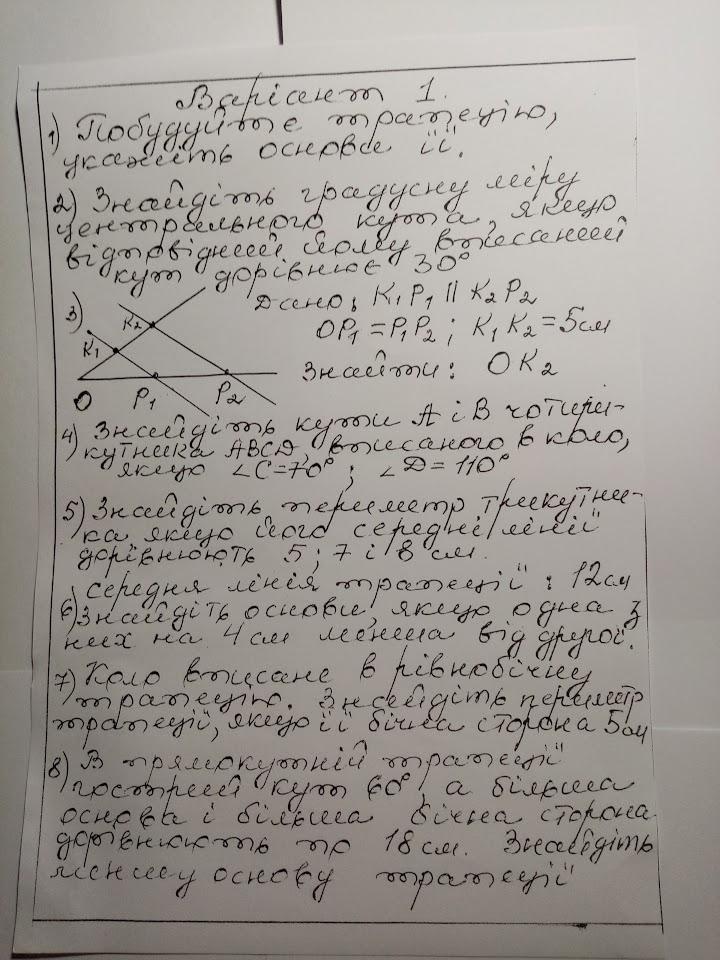 Варіант 1.
1) Побудуйте трапецію,
укажіть основи її.
2) Знайдіть градусну міру
центрального кута, якщо
відповідний йому вписаний
кут дорівнює 30°
3) Дано: K₁P₁ || K₂P₂
OP₁ = P₁P₂ ; K₁K₂ = 5см
Знайти: OK₂
K₂
K₁
O P₁ P₂
4) Знайдіть кути A і B чотири-
кутника ABCD, вписаного в коло,
якщо ∠C=70° ; ∠D=110°
5) Знайдіть периметр трикутни-
ка якщо його середні лінії
дорівнюють 5 ; 7 і 8 см.
6) Середня лінія трапеції : 12см
Знайдіть основи, якщо одна з
них на 4 см менша від другої.
7) Коло вписане в рівнобічну
трапецію. Знайдіть периметр
трапеції, якщо її бічна сторона 5см
8) В прямокутній трапеції
гострий кут 60°, а більша
основа і більша бічна сторона
дорівнюють по 18 см. Знайдіть
меншу основу трапеції